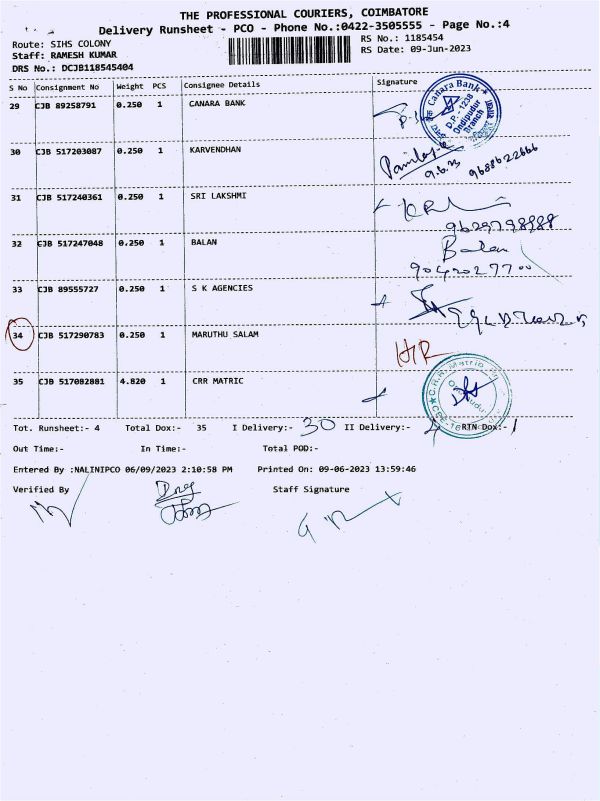 THE PROFESSIONAL COURIERS, COIMBATORE
Delivery Runsheet - PCO - Phone No.:0422-3505555 - Page No.:4
Route: SIHS COLONY RS No.: 1185454
Staff: RAMESH KUMAR RS Date: 09-Jun-2023
DRS No.: DCJB118545404
S No Consignment No Weight PCS Consignee Details Signature
29 CJB 89258791 0.250 1 CANARA BANK
Canara Bank
D.P.-1238
Ondipudur
Branch
30 CJB 517203087 0.250 1 KARVENDHAN
9.6.23 9688622666
31 CJB 517240361 0.250 1 SRI LAKSHMI
9629798888
32 CJB 517247048 0.250 1 BALAN Balan
9042027700
33 CJB 89555727 0.250 1 S K AGENCIES
34 CJB 517290783 0.250 1 MARUTHU SALAM
35 CJB 517082881 4.820 1 CRR MATRIC
Tot. Runsheet:- 4 Total Dox:- 35 I Delivery:- 30 II Delivery:- 4 RTN Dox:- 1
Out Time:- In Time:- Total POD:-
Entered By :NALINIPCO 06/09/2023 2:10:58 PM Printed On: 09-06-2023 13:59:46
Verified By Staff Signature